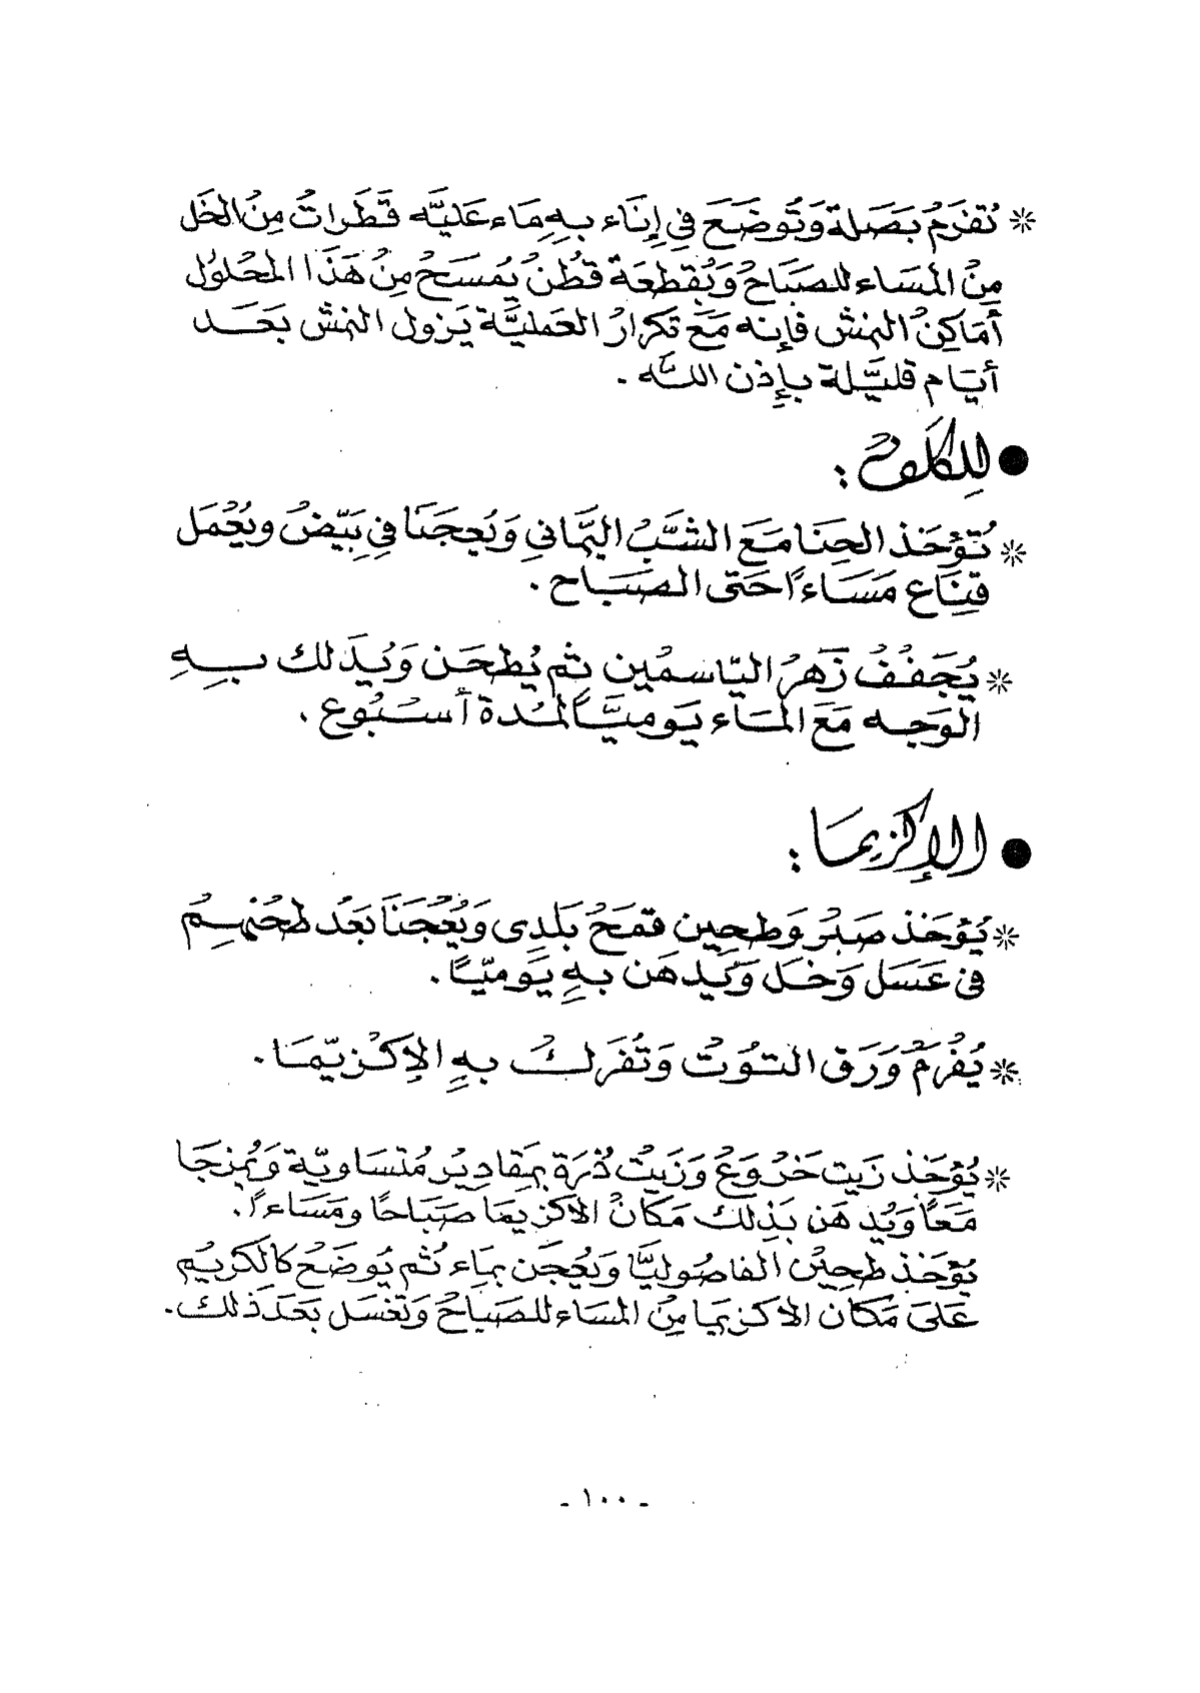 * تُفرَمُ بَصَلة وَتُوضَعَ فِي إِنَاء بهِ مَاء عَليَّه قَطَراتُ مِنُ الخَل
مِنُ المسَاء للصبَاحُ وَبُقطعَة قطُنُ يُمسَحُ مِنُ هَذَا المحُلوُل
أمَاكِنُ النمش فإنه مَعَ تكرارُ العَمليَّة يَزول النمش بَعَد
أيَام قليَّلة بإِذن اللَّه .
● لِلِكَلَفُ :
* تُؤْخَذ الحِنَا مَعَ الشَّبُ اليَمَاني وَيُعجَنَا فِي بَيّضُ ويُعْمَل
قِنَاع مَسَاءًا حَتى الصَبَاح .
* يُجَفُفُ زَهرُ اليّاسمُين ثم يُطحَن وَيُدَلك بِهِ
الوَجه مَعَ المَاء يَوميَّاً لمُدة أسبُوع .
● الإكزيمَا :
* يُؤخَذ صَبرُ وَطحِين قمَحُ بَلَدِى وَيُعُجَنَا بَعَدُ طحُنهِمُ
فى عَسَل وَخَل وَيُدهَن بهِ يَوميّاً.
* يُفُرَمُ وَرَق التوُتُ وَتُفَرَكُ بهِ الإِكزيّمَا .
* يُؤْخَذ زَيت خَرُوَعُ وَزَيتُ ذُرَة بمَقادِيرُ مُتسَاويّة وَيُمزجَا
مَعَاً وَيُدهَن بذلك مَكانُ الأكزيمَا صَبَاحًا ومَسَاءًا .
يُؤخَذ طحِينُ الفاصُوليَّا وَيُعجَن بمَاء ثم يُوضَعُ كالكَريُم
عَلىَ مَكان الاكزيمَا مِنُ المسَاء للصَبَاحُ وَتغسَل بَعَد ذلك .
- ١٠٠ -